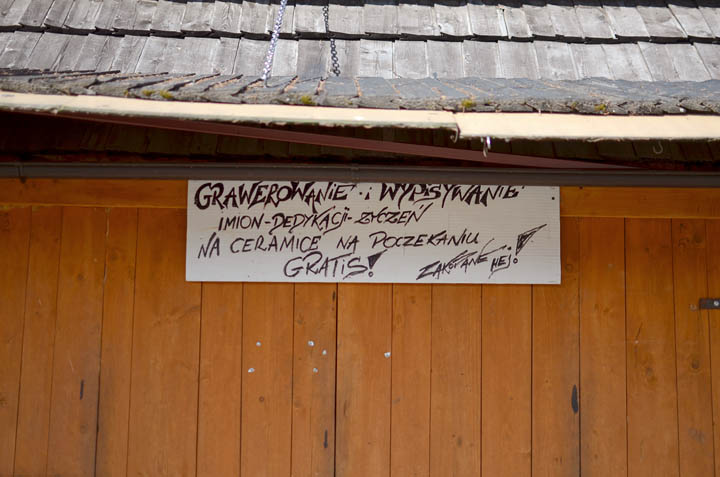 GRAWEROWANIE i WYPISYWANIE
IMION-DEDYKACJI-ŻYCZEŃ
NA CERAMICE NA POCZEKANIU
GRATIS! ZAKOPANE HEJ!